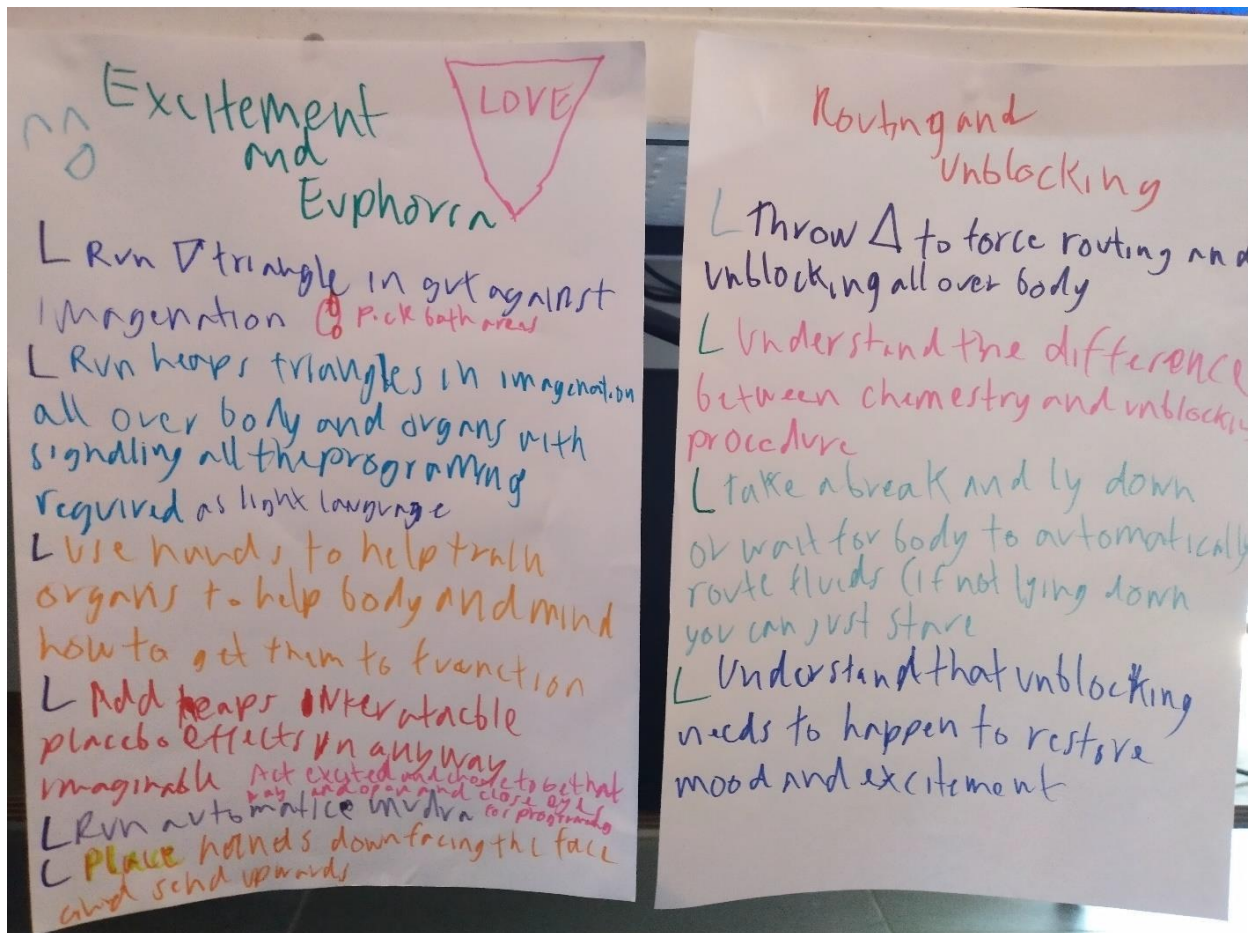 Excitement
and
Euphoria
LOVE
L Run ▽ triangle in gut against
imagenation Pick both areas
L Run heaps triangles in imagenation
all over body and organs with
signalling all the programing
required as light language
L Use hands to help train
organs to help body and mind
how to get them to function
L Add heaps
placebo effects in anyway
imaginable Act excited and chose to be that
way and open and close eyes
L Run automatice mudra for programing
L Place hands down facing the face
and send upwards
Routing and
unblocking
L Throw △ to force routing and
unblocking all over body
L Understand the difference
between chemestry and
procedure
L take a break and ly down
or wait for body to automatically
route fluids (if not lying down
you can just stare
L Understand that unblocking
needs to happen to restore
mood and excitement